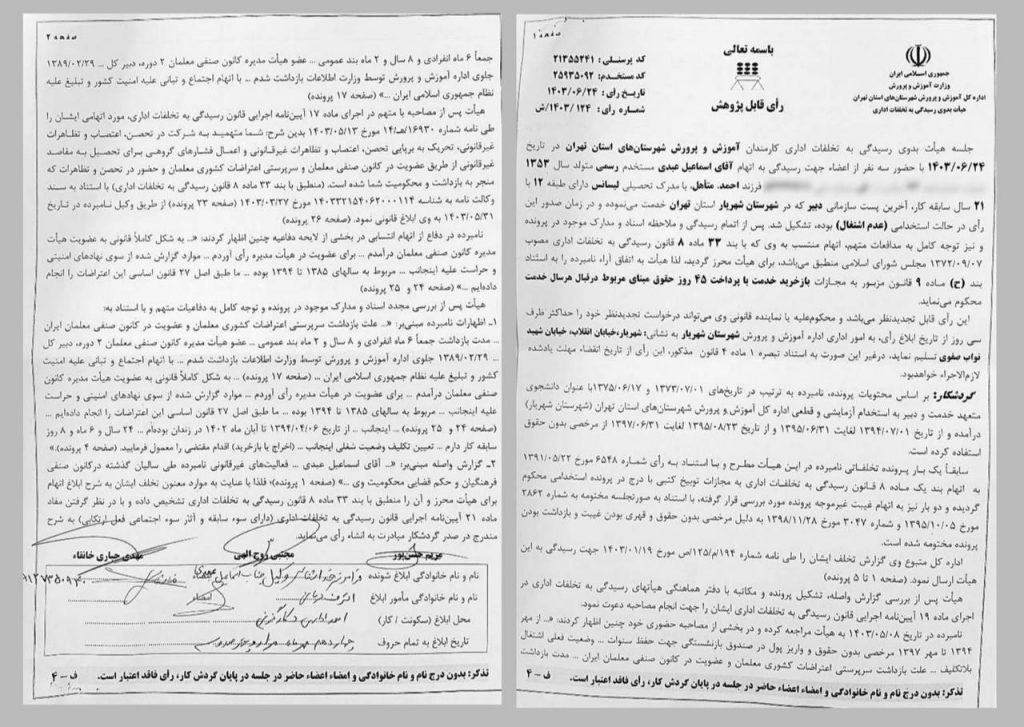 صفحه ۱
باسمه تعالی
رأی قابل پژوهش
جمهوری اسلامی ایران
وزارت آموزش و پرورش
اداره کل آموزش و پرورش شهرستان‌های استان تهران
هیأت بدوی رسیدگی به تخلفات اداری
کد پرسنلی: ۲۱۳۵۵۲۴۱
کد مستخدم: ۲۵۹۳۵۰۹۲
تاریخ رأی: ۱۴۰۳/۰۶/۲۴
شماره رأی: ۱۲۴ /۱۴۰۳/ش
جلسه هیأت بدوی رسیدگی به تخلفات اداری کارمندان آموزش و پرورش شهرستان‌های استان تهران در تاریخ
۱۴۰۳/۰۶/۲۴ با حضور سه نفر از اعضاء جهت رسیدگی به اتهام آقای اسماعیل عبدی مستخدم رسمی متولد سال ۱۳۵۳
فرزند احمد، متأهل، با مدرک تحصیلی لیسانس دارای طبقه ۱۲ با
۲۱ سال سابقه کار، آخرین پست سازمانی دبیر که در شهرستان شهریار استان تهران خدمت می‌نموده و در زمان صدور این
رأی در حالت استخدامی (عدم اشتغال) بوده، تشکیل شد. پس از اتمام رسیدگی و ملاحظه اسناد و مدارک موجود در پرونده
و نیز توجه کامل به مدافعات متهم، اتهام منتسب به وی که با بند ۳۳ ماده ۸ قانون رسیدگی به تخلفات اداری مصوب
۱۳۷۲/۰۹/۰۷ مجلس شورای اسلامی منطبق می‌باشد، برای هیأت محرز گردید، لذا هیأت به اتفاق آراء نامبرده را به استناد
بند (ح) ماده ۹ قانون مزبور به مجازات بازخرید خدمت با پرداخت ۴۵ روز حقوق مبنای مربوط درقبال هرسال خدمت
محکوم می‌نماید.
این رأی قابل تجدیدنظر می‌باشد و محکوم‌علیه یا نماینده قانونی وی می‌تواند درخواست تجدیدنظر خود را حداکثر ظرف
سی روز از تاریخ ابلاغ رأی، به امور اداری اداره آموزش و پرورش شهرستان شهریار به نشانی: شهریار،خیابان انقلاب، خیابان شهید
نواب صفوی تسلیم نماید، درغیر این صورت به استناد تبصره ۱ ماده ۴ قانون مذکور، این رأی از تاریخ انقضاء مهلت یادشده
لازم‌الاجراء خواهدبود.
گردشکار: بر اساس محتویات پرونده، نامبرده به ترتیب در تاریخ‌های ۱۳۷۳/۰۷/۰۱ و ۱۳۷۵/۰۶/۱۷با عنوان دانشجوی
متعهد خدمت و دبیر به استخدام آزمایشی و قطعی اداره کل آموزش و پرورش شهرستان‌های استان تهران (شهرستان شهریار)
درآمده و از تاریخ ۱۳۹۴/۰۷/۰۱ لغایت ۱۳۹۵/۰۶/۳۱ و از تاریخ ۱۳۹۵/۰۸/۲۳ لغایت ۱۳۹۷/۰۶/۳۱ از مرخصی بدون حقوق
استفاده کرده است.
سابقاً یک بار پرونده تخلفاتی نامبرده در این هیأت مطرح و با استناد به رأی شماره ۶۵۴۸ مورخ ۱۳۹۱/۰۵/۲۲
به اتهام بند یک ماده ۸ قانون رسیدگی به تخلفات اداری به مجازات توبیخ کتبی با درج در پرونده استخدامی محکوم
گردیده و دو بار نیز به اتهام غیبت غیرموجه پرونده مورد بررسی قرار گرفته، با استناد به صورتجلسه مختومه به شماره ۲۸۶۲
مورخ ۱۳۹۵/۱۰/۰۵ و شماره ۳۰۴۷ مورخ ۱۳۹۸/۱۱/۲۸ به دلیل مرخصی بدون حقوق و قهری بودن غیبت و بازداشت بودن
پرونده مختومه شده است.
اداره کل متبوع وی گزارش تخلف ایشان را طی نامه شماره ۱۹۴/م/۱۲۵/ص مورخ ۱۴۰۳/۰۱/۱۹ جهت رسیدگی به این
هیأت ارسال نمود. (صفحه ۱ تا ۵ پرونده)
هیأت پس از بررسی گزارش واصله، تشکیل پرونده و مکاتبه با دفتر هماهنگی هیأتهای رسیدگی به تخلفات اداری در
اجرای ماده ۱۹ آیین‌نامه اجرایی قانون رسیدگی به تخلفات اداری ایشان را جهت انجام مصاحبه دعوت نمود.
نامبرده در تاریخ ۱۴۰۳/۰۵/۰۸ به هیأت مراجعه کرده و در بخشی از مصاحبه حضوری خود چنین اظهار کردند: «.. از مهر
۱۳۹۴ تا مهر ۱۳۹۷ مرخصی بدون حقوق و واریز پول در صندوق بازنشستگی جهت حفظ سنوات ... وضعیت فعلی اشتغال
بلاتکلیف ... علت بازداشت سرپرستی اعتراضات کشوری معلمان و عضویت در کانون صنفی معلمان ایران ... مدت بازداشت
تذکر: بدون درج نام و نام خانوادگی و امضاء اعضاء حاضر در جلسه در پایان گردش کار، رأی فاقد اعتبار است.
ف – ۴
صفحه ۲
جمعاً ۶ ماه انفرادی و ۸ سال و ۲ ماه بند عمومی ... عضو هیأت مدیره کانون صنفی معلمان ۲ دوره، دبیر کل ... ۱۳۸۹/۰۲/۲۹
جلوی اداره آموزش و پرورش توسط وزارت اطلاعات بازداشت شدم ... با اتهام اجتماع و تبانی علیه امنیت کشور و تبلیغ علیه
نظام جمهوری اسلامی ایران ...» (صفحه ۱۷ پرونده)
هیأت پس از مصاحبه با متهم در اجرای ماده ۱۷ آیین‌نامه اجرایی قانون رسیدگی به تخلفات اداری، مورد اتهامی ایشان را
طی نامه شماره ۱۶۹۳۰/هـ/۱۴ مورخ ۱۴۰۳/۰۵/۱۳ بدین شرح: شما متهمید به شرکت در تحصن، اعتصاب و تظاهرات
غیرقانونی، تحریک به برپایی تحصن، اعتصاب و تظاهرات غیرقانونی و اعمال فشارهای گروهی برای تحصیل به مقاصد
غیرقانونی از طریق عضویت در کانون صنفی معلمان و سرپرستی اعتراضات کشوری معلمان و حضور در تحصن و تظاهرات که
منجر به بازداشت و محکومیت شما شده است. (منطبق با بند ۳۳ ماده ۸ قانون رسیدگی به تخلفات اداری) با استناد به سند
وکالت نامه به شناسه ۱۴۰۳۳۲۱۵۴۰۶۲۰۰۰۱۱۴ مورخ ۱۴۰۳/۰۳/۲۷ (صفحه ۲۳ پرونده) از طریق وکیل نامبرده در تاریخ
۱۴۰۳/۰۵/۳۱ به وی ابلاغ قانونی نمود. (صفحه ۲۶ پرونده)
نامبرده در دفاع از اتهام انتسابی در بخشی از لایحه دفاعیه چنین اظهار کردند: «.. به شکل کاملاً قانونی به عضویت هیأت
مدیره کانون صنفی معلمان درآمدم ... برای عضویت در هیأت مدیره رأی آوردم ... موارد گزارش شده از سوی نهادهای امنیتی
و حراست علیه اینجانب ... مربوط به سالهای ۱۳۸۵ تا ۱۳۹۴ بوده ... ما طبق اصل ۲۷ قانون اساسی این اعتراضات را انجام
داده‌ایم ...» (صفحه ۲۴ و ۲۵ پرونده)
هیأت پس از بررسی مجدد اسناد و مدارک موجود در پرونده و توجه کامل به دفاعیات متهم و با استناد به:
۱ـ اظهارات نامبرده مبنی‌بر: «.. علت بازداشت سرپرستی اعتراضات کشوری معلمان و عضویت در کانون صنفی معلمان ایران
... مدت بازداشت جمعاً ۶ ماه انفرادی و ۸ سال و ۲ ماه بند عمومی ... عضو هیأت مدیره کانون صنفی معلمان ۲ دوره، دبیر کل
... ۱۳۸۹/۰۲/۲۹ جلوی اداره آموزش و پرورش توسط وزارت اطلاعات بازداشت شدم ... با اتهام اجتماع و تبانی علیه امنیت
کشور و تبلیغ علیه نظام جمهوری اسلامی ایران ... (صفحه ۱۷ پرونده) ... به شکل کاملاً قانونی به عضویت هیأت مدیره کانون
صنفی معلمان درآمدم ... برای عضویت در هیأت مدیره رأی آوردم ... موارد گزارش شده از سوی نهادهای امنیتی و حراست
علیه اینجانب ... مربوط به سالهای ۱۳۸۵ تا ۱۳۹۴ بوده ... ما طبق اصل ۲۷ قانون اساسی این اعتراضات را انجام داده‌ایم ...
(صفحه ۲۴ و ۲۵ پرونده) ... اینجانب ... از تاریخ ۱۳۹۴/۰۴/۰۶ تا آبان ماه ۱۴۰۲ در زندان بوده‌ام ... ۲۴ سال و ۶ ماه و ۸ روز
سابقه کار دارم ... تعیین تکلیف وضعیت شغلی اینجانب ... (اخراج یا بازخرید) اقدام مقتضی را معمول فرمایید. (صفحه ۴ پرونده).»
۲ـ گزارش واصله مبنی‌بر: «.. آقای اسماعیل عبدی ... فعالیت‌های غیرقانونی نامبرده طی سالیان گذشته درکانون صنفی
فرهنگیان و حکم قضایی محکومیت وی ...» (صفحه ۱ پرونده)؛ فلذا با عنایت به موارد معنون تخلف ایشان به شرح ابلاغ اتهام
برای هیأت محرز و آن را منطبق با بند ۳۳ ماده ۸ قانون رسیدگی به تخلفات اداری تشخیص داده و با در نظر گرفتن مفاد
ماده ۲۱ آیین‌نامه اجرایی قانون رسیدگی به تخلفات اداری (دارای سوء سابقه و آثار سوء اجتماعی فعل ارتکابی) به شرح
مندرج در صدر گردشکار مبادرت به انشاء رأی می‌نماید.
مریم حسن‌پور
مجتبی روح الهی
مهدی جباری خانقاه
نام و نام خانوادگی ابلاغ شونده
وکیل جناب اسماعیل عبدی
نام و نام خانوادگی مأمور ابلاغ
امضاء
محل ابلاغ (سکونت / کار)
تاریخ ابلاغ به تمام حروف
تذکر: بدون درج نام و نام خانوادگی و امضاء اعضاء حاضر در جلسه در پایان گردش کار، رأی فاقد اعتبار است.
ف – ۴